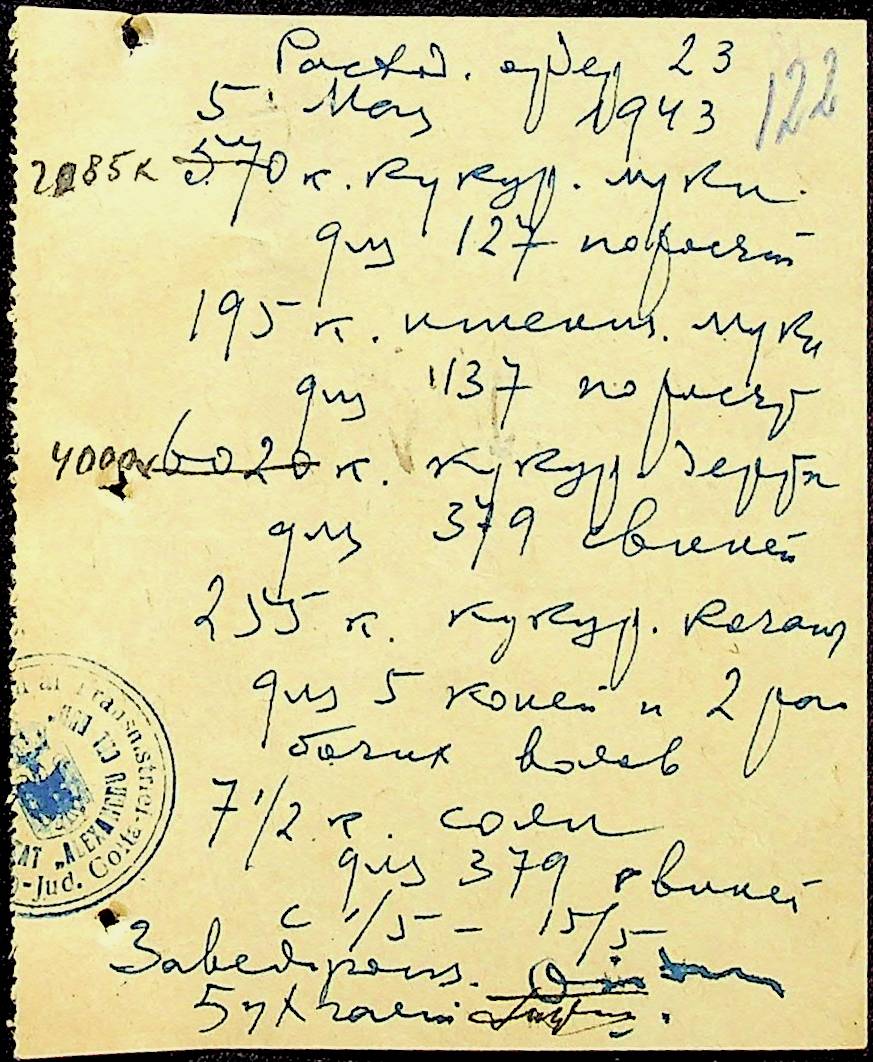 Расход. ордер 23
122
5 Мая 1943
2085к 570 к. кукур. муки.
для 127 поросят
195 к. пшенич. муки
для 137 поросят
4000к 6020 к. кукур. зерна
для 379 свиней
255 к. кукур. кочан
для 5 коней и 2 ра
бочих волов
7 1/2 к. соли
для 379 свиней
с 1/5 - 15/5
Завед.
Бухгалт.
al Transnistriei
"ALEXANDRU CEL BUN"
Jud. Golta